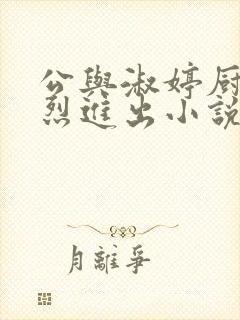 公與淑婷厨
烈進出小說
月離爭